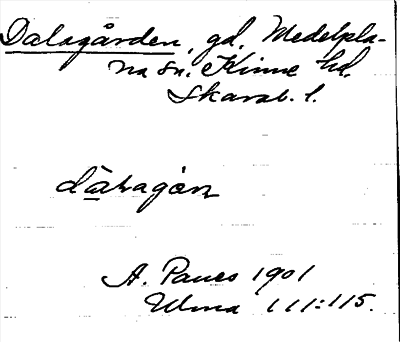 Dalagården, gd, Medelpla-
na sn. Kinne hd.
Skarab. l.
dàlagàrn
A. Paues 1901
Ulma 111:115.